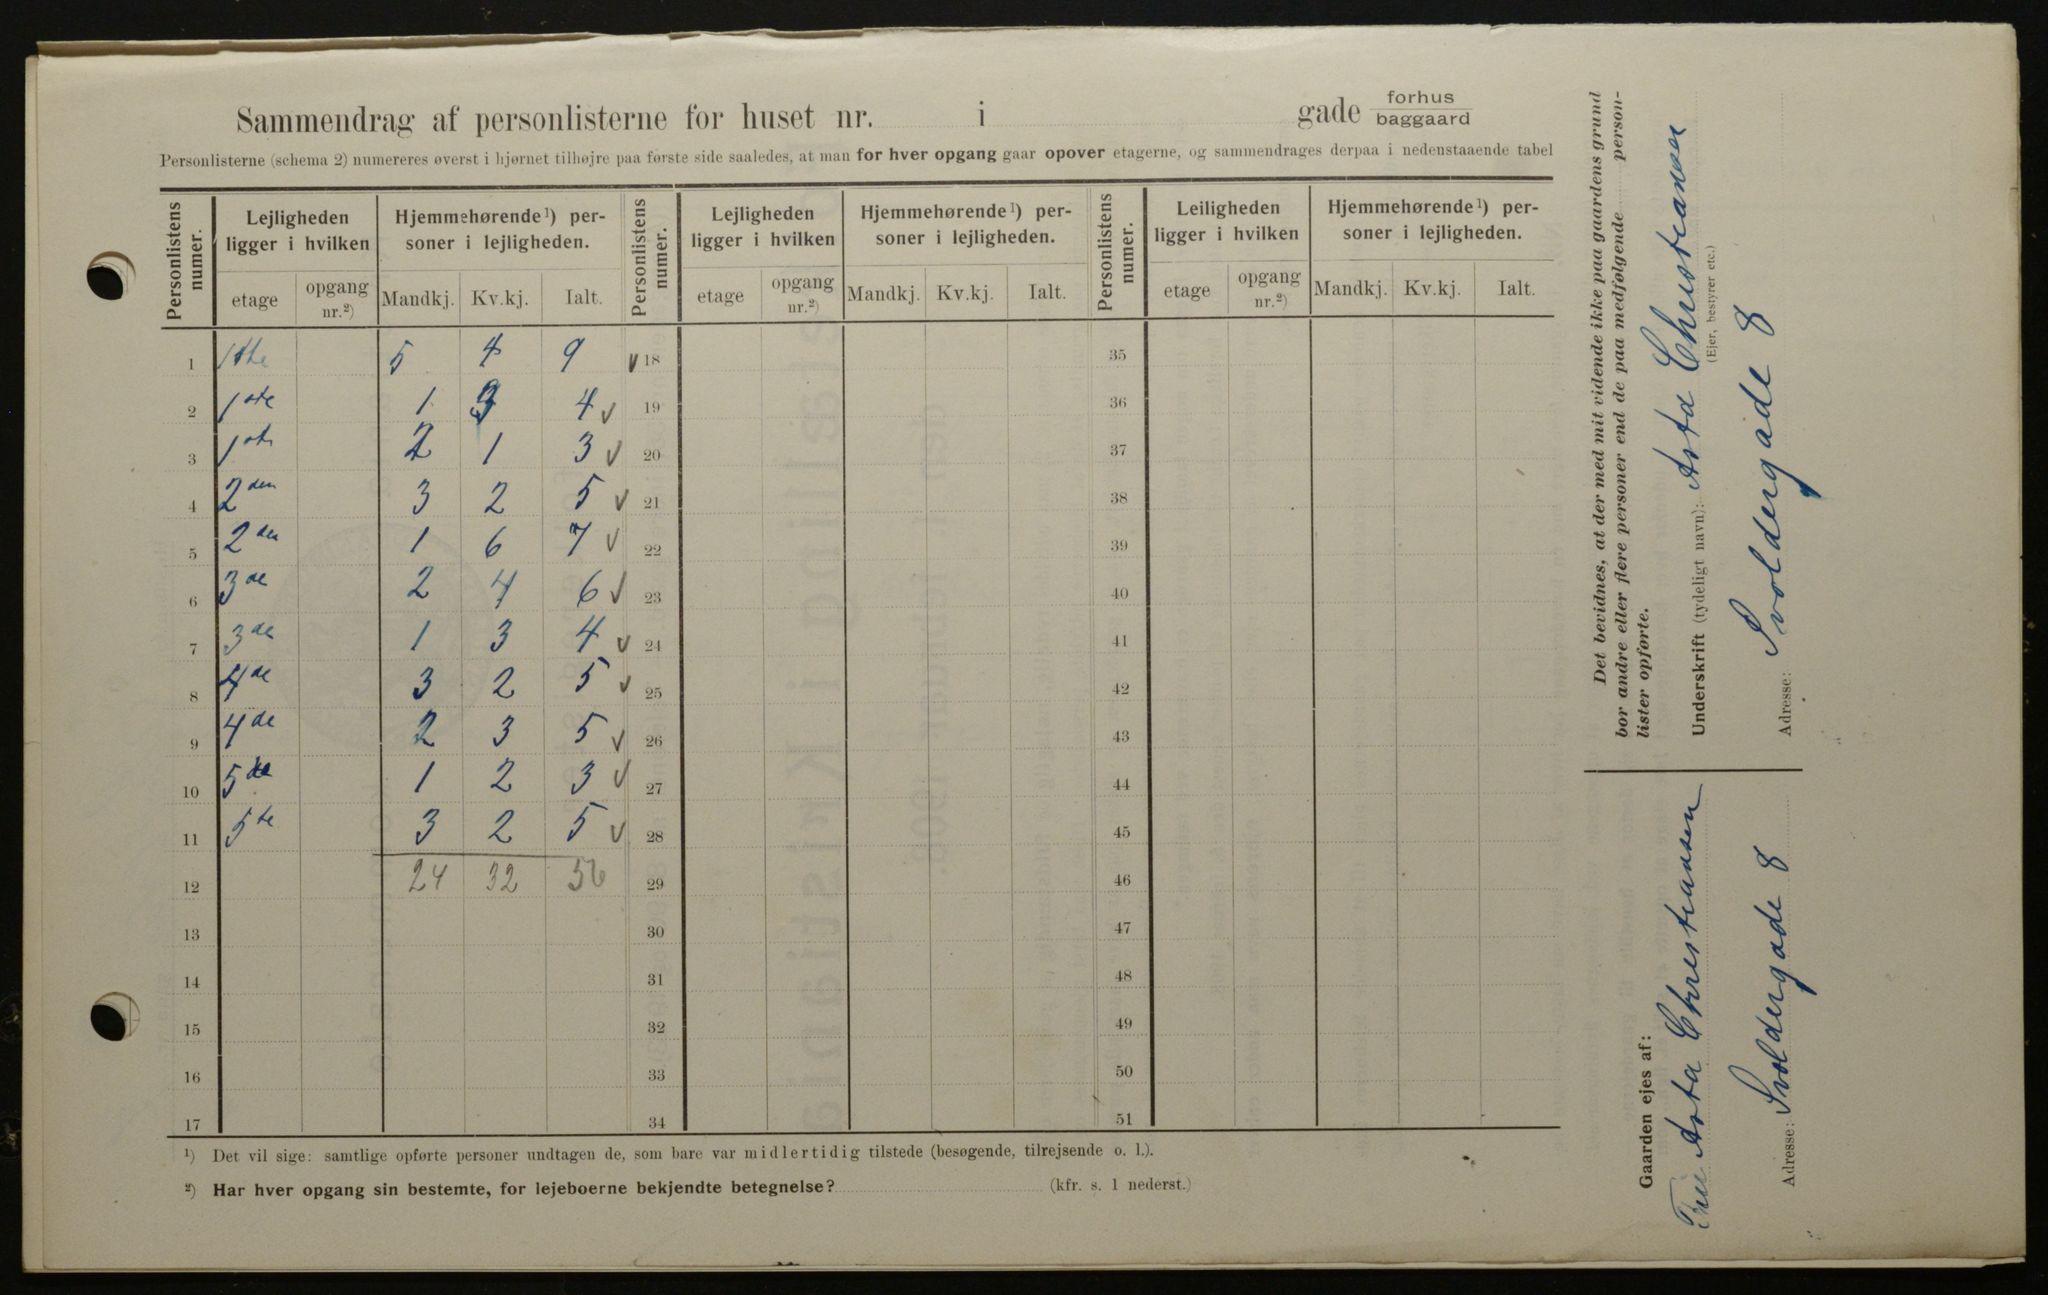 Sammendrag af personlisterne for huset nr. i gade forhus
baggaard
Personlisterne (schema 2) numereres øverst i hjørnet tilhøjre paa første side saaledes, at man for hver opgang gaar opover etagerne, og sammendrages derpaa i nedenstaaende tabel
Personlistens numer. Lejligheden ligger i hvilken Hjemmehørende¹) personer i lejligheden. Personlistens numer. Lejligheden ligger i hvilken Hjemmehørende¹) personer i lejligheden. Personlistens numer. Leiligheden ligger i hvilken Hjemmehørende¹) personer i lejligheden.
etage opgang nr.²) Mandkj. Kv.kj. Ialt. etage opgang nr.²) Mandkj. Kv.kj. Ialt. etage opgang nr.²) Mandkj. Kv.kj. Ialt.
1 5 4 9 18 35
2 1ste 1 3 4 19 36
3 1ste 2 1 3 20 37
4 2den 3 2 5 21 38
5 2den 1 6 7 22 39
6 3de 2 4 6 23 40
7 3de 1 3 4 24 41
8 4de 3 2 5 25 42
9 4de 2 3 5 26 43
10 5te 1 2 3 27 44
11 5te 3 2 5 28 45
12 24 32 56 29 46
13 30 47
14 31 48
15 32 49
16 33 50
17 34 51
¹) Det vil sige: samtlige opførte personer undtagen de, som bare var midlertidig tilstede (besøgende, tilrejsende o. l.).
²) Har hver opgang sin bestemte, for lejeboerne bekjendte betegnelse? (kfr. s. 1 nederst.)
Det bevidnes, at der med mit vidende ikke paa gaardens grund
bor andre eller flere personer end de paa medfølgende person-
lister opførte.
Underskrift (tydeligt navn): Asta Christiansen
(Ejer, bestyrer etc.)
Adresse: Svoldergade 8
Gaarden ejes af:
Fru Asta Christiansen
Adresse: Svoldergade 8